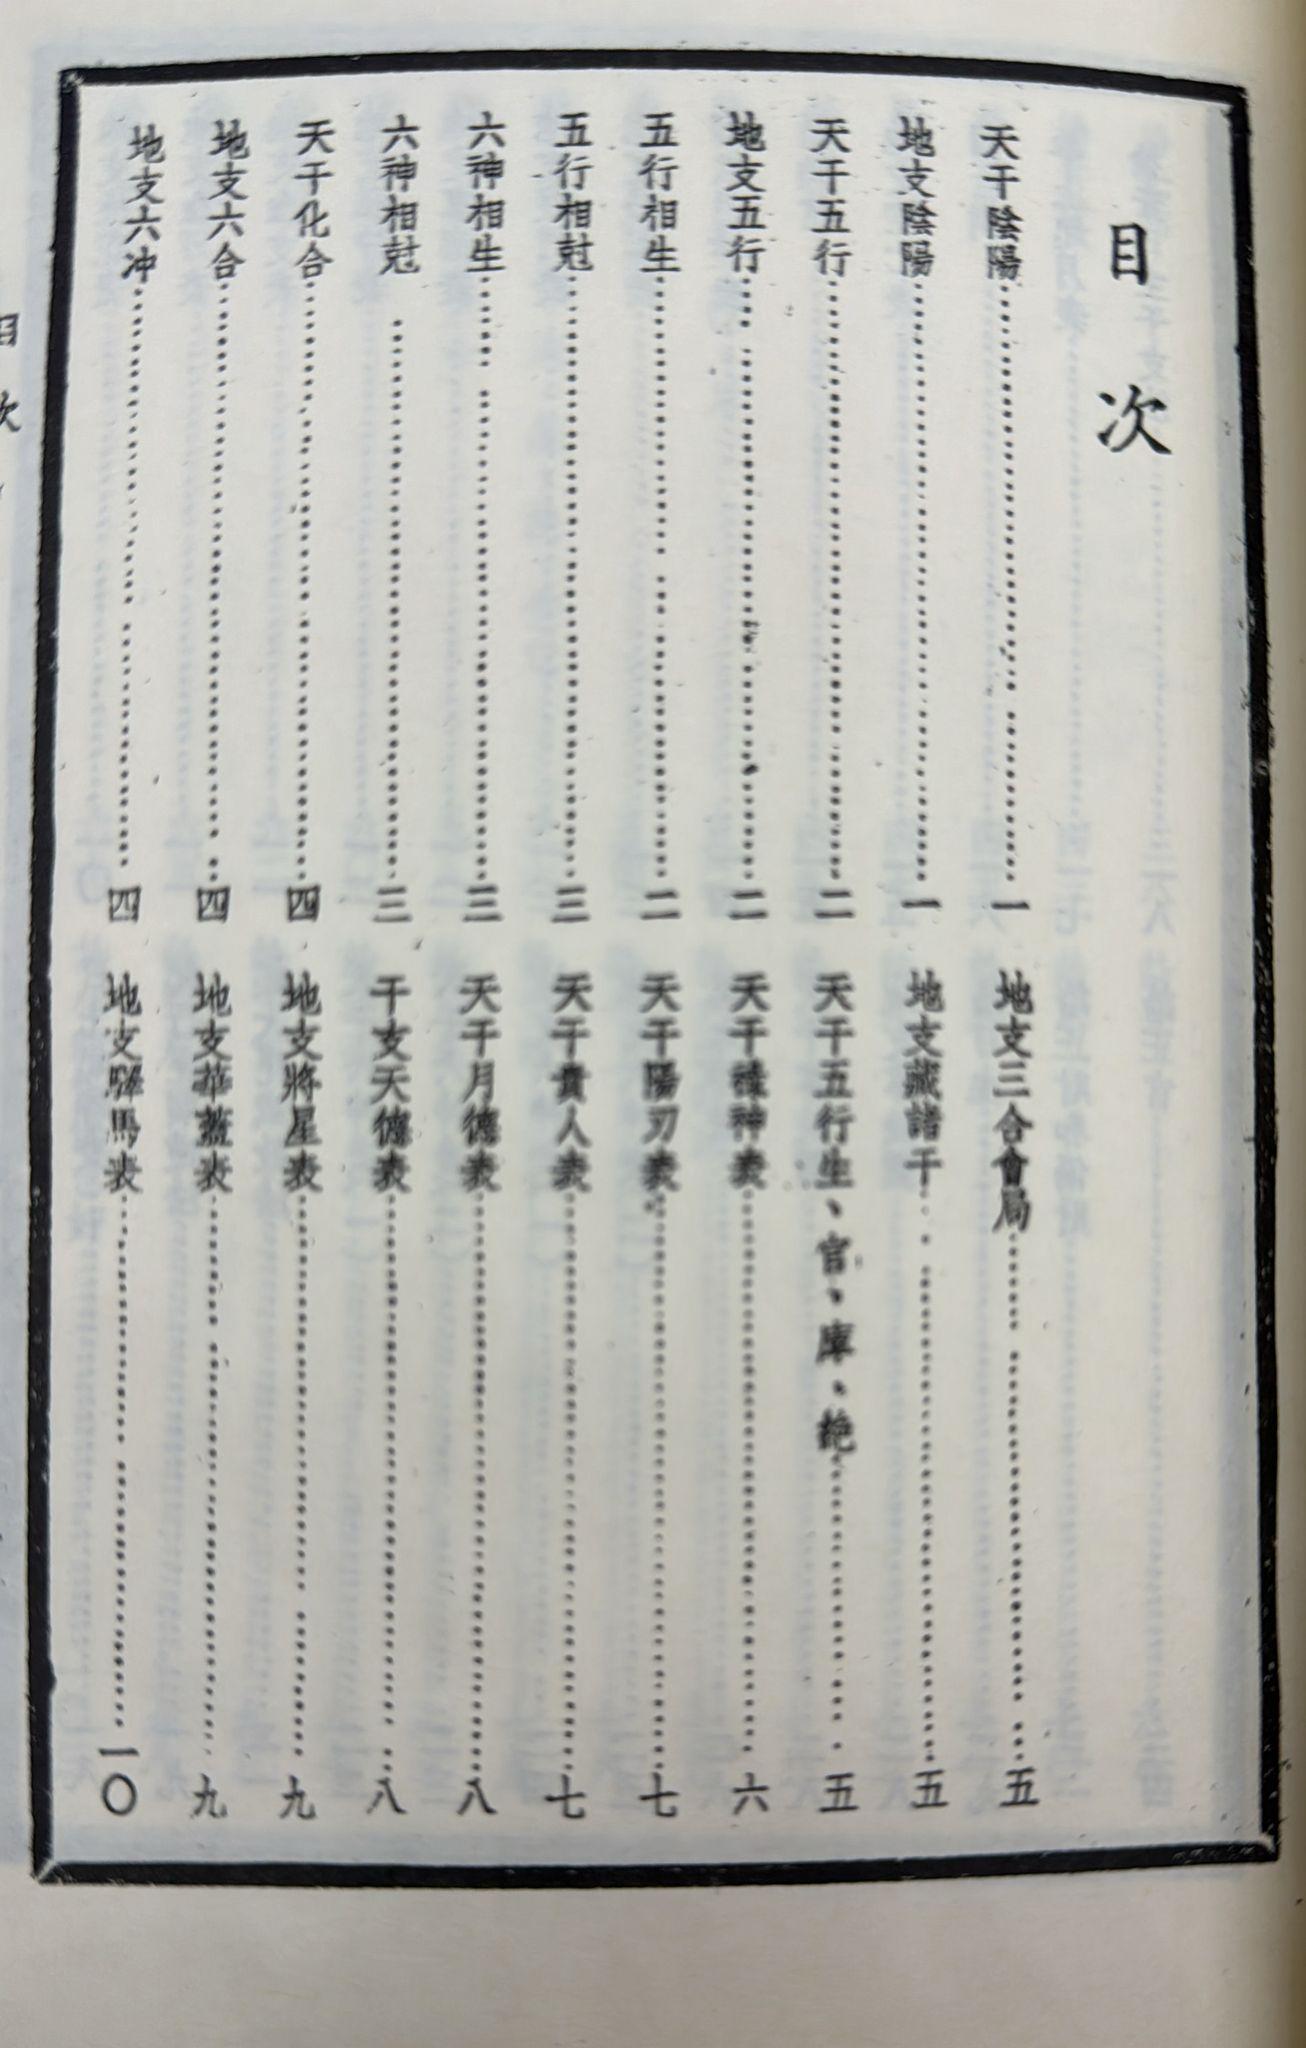 目次
天干陰陽……一
地支陰陽……一
天干五行……二
地支五行……二
五行相生……二
五行相尅……三
六神相生……三
六神相尅……三
天干化合……四
地支六合……四
地支六冲……四
地支三合會局……五
地支藏諸干……五
天干五行生、官、庫、絶……五
天干祿神表……六
天干陽刃表……七
天干貴人表……七
天干月德表……八
干支天德表……八
地支將星表……九
地支華蓋表……九
地支驛馬表……一〇
目次